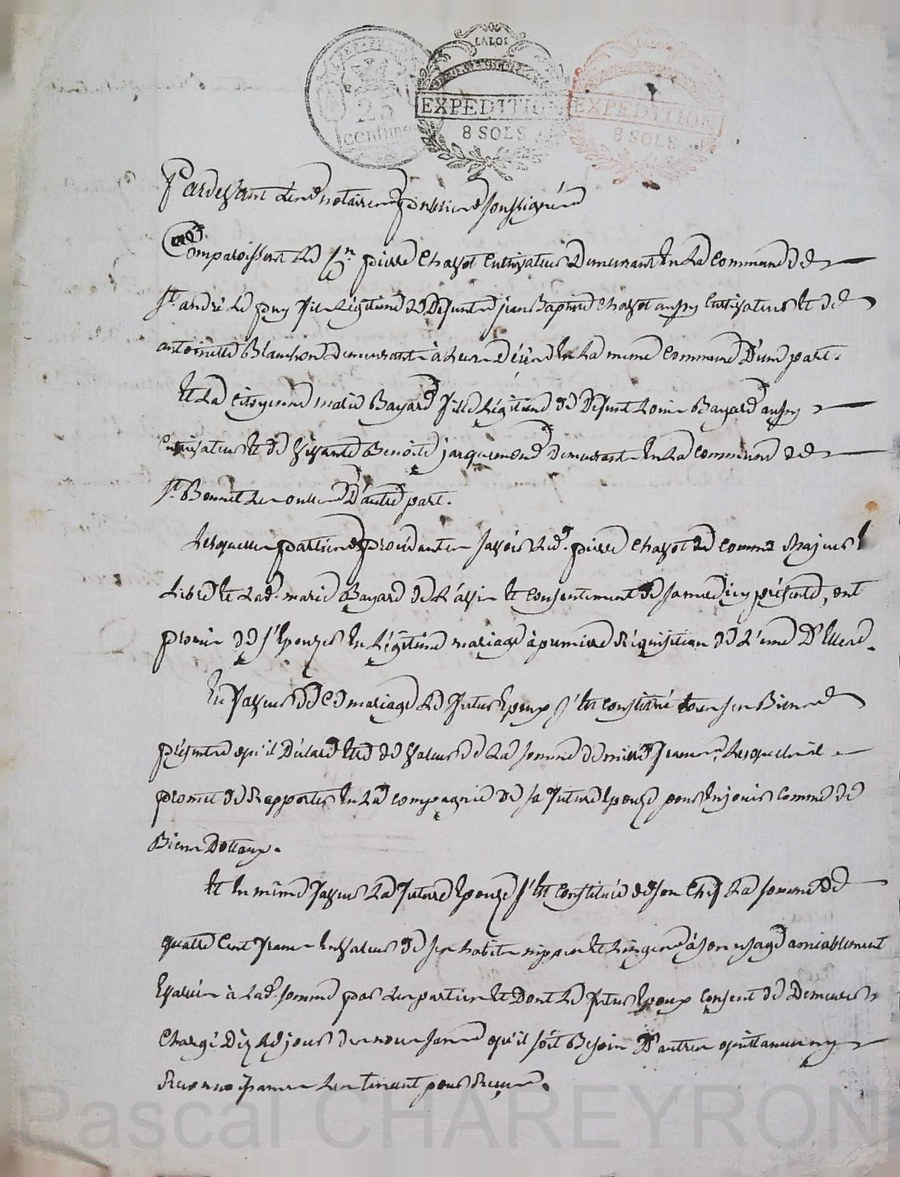 25
centimes
LA LOI
EXPEDITION
8 SOLS
LA LOI
EXPEDITION
8 SOLS
Pardevant les notaires publics soussignés
Comparoissent le Cn pierre Chazot Cultivateur Demeurant En La Commune de
St andré Le puy fils Légitime de Defunt jean Baptiste Chazot aussy Cultivateur Et de
antoinette Blanchon demeurant à Leur décès En La meme Commune D'une part.
Et La Citoyenne marie Bayard fille Légitime de Defunt Bayard aussy
Cultivateur Et de Vivante Benoite jacquemond demeurant En La commune de
St Bonnet Les oulles D'autre part.
Lesquelles parties procedantes savoir Led. pierre Chazot comme Majeur &
Libre Et Lad. marie Bayard de L'avis Et Consentement de sa mere icy présente, ont
promis de s'Epouzer En Légitime mariage à premiere Réquisition de L'une D'Elles.
En faveur de Ce mariage Le futur Epoux s'Est Constitué tous ses Biens
présents qu'il Déclare Etre de Valeur de La somme de mille francs, Lesquels il
promet de Rapporter En La compagnie de sa future Epouze pour En jouir Comme de
Biens Dottaux.
Et En même faveur La future Epouze s'Est Constituée de son Chef La somme de
quatre Cent francs En Valeur de ses habits nippes Et Linges à son usage amiablement
Evalués à Lad. somme par Les parties Et Dont Le futur Epoux Consent de Demeurer
Chargé Dez Le jour des noces sans qu'il soit Besoin D'autres quittances ny
Reconnoissances Les tenant pour Reçues.
Pascal CHAREYRON